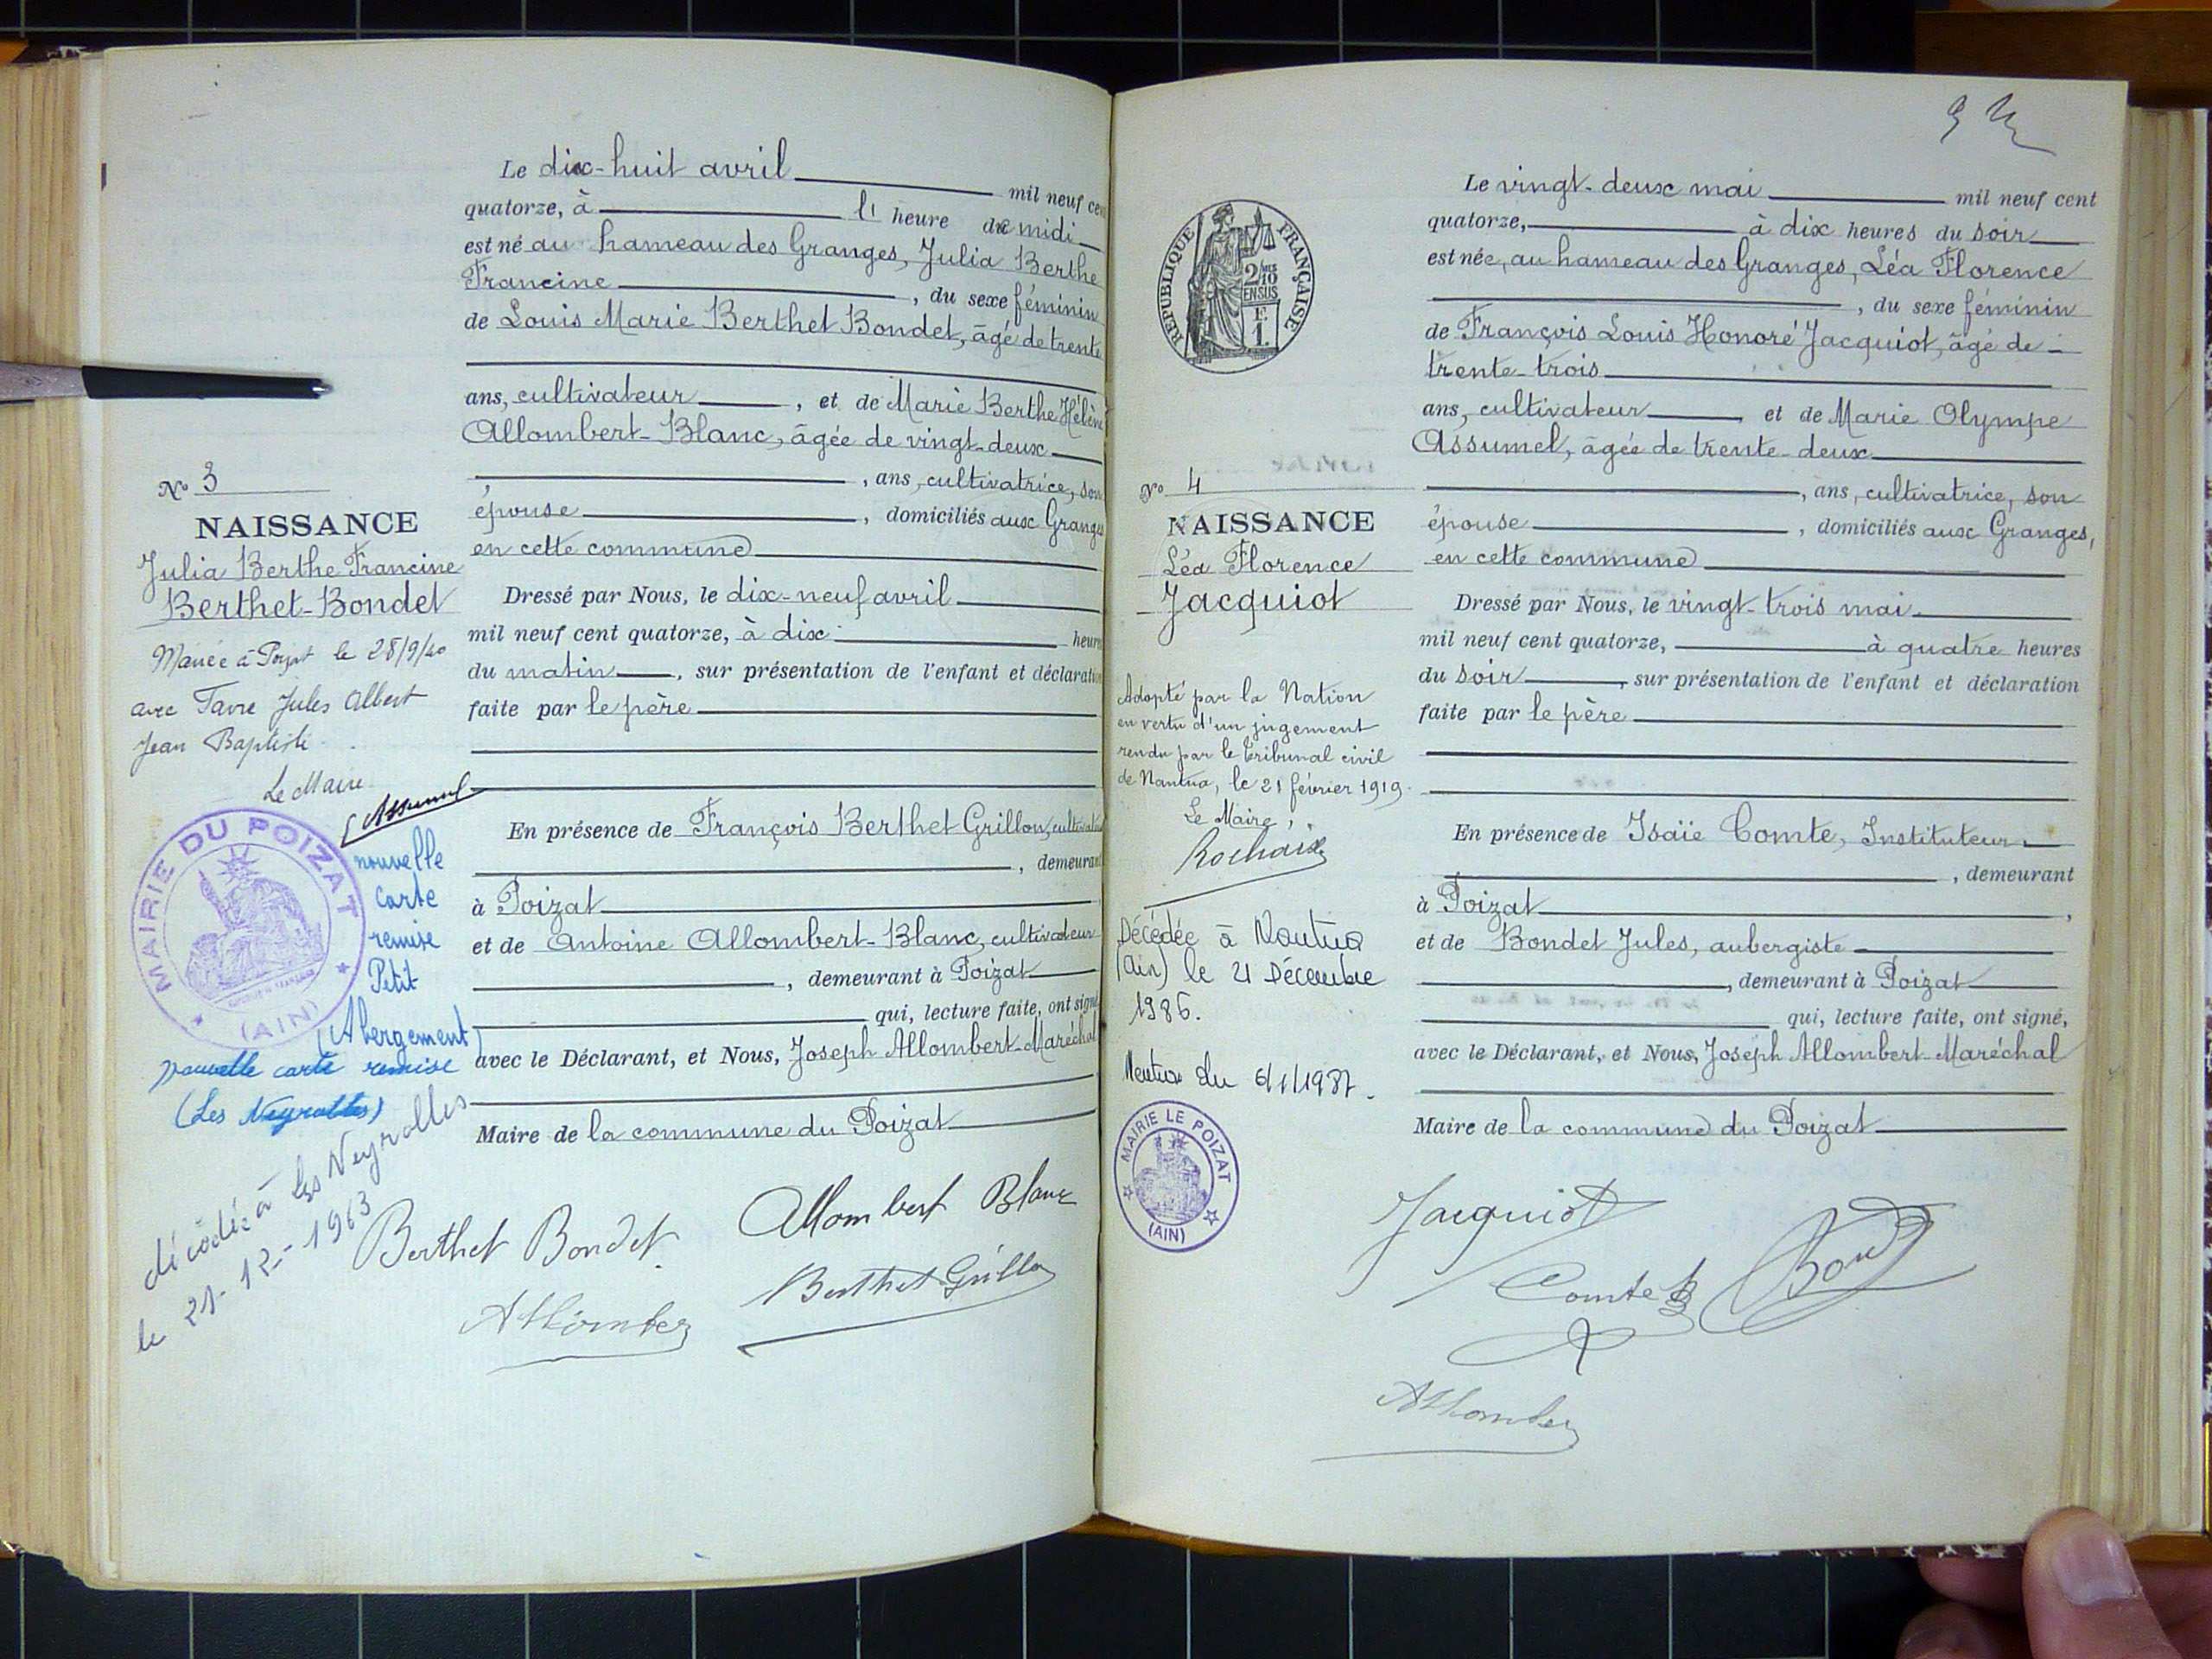 Le dix-huit avril mil neuf cen
quatorze, à l' heure de midi
est né au hameau des Granges, Julia Berthe
Francine, du sexe féminin
de Louis Marie Berthet Bondet, âgé de trente
ans, cultivateur, et de Marie Berthe Hélène
Allombert-Blanc, âgée de vingt-deux
, ans, cultivatrice, son
épouse, domiciliés aux Granges
en cette commune
Dressé par Nous, le dix-neuf avril
mil neuf cent quatorze, à dix heures
du matin, sur présentation de l'enfant et déclaration
faite par le père
En présence de François Berthet Grillon, cultivateur
, demeurant
à Poizat
et de Antoine Allombert-Blanc, cultivateur
, demeurant à Poizat
qui, lecture faite, ont signé
avec le Déclarant, et Nous, Joseph Allombert-Maréchal
Maire de la commune du Poizat
Berthet Bondet
Allombert Blanc
Berthet-Grillon
Allomber
No 3
NAISSANCE
Julia Berthe Francine
Berthet-Bondet
Mariée à Poizat le 28/9/40
avec Favre Jules Albert
Jean Baptiste
Le Maire
Assumel
MAIRIE DU POIZAT
(AIN)
nouvelle
carte
remise
Petit
(Abergement)
nouvelle carte remise
(Les Neyrolles)
décédée à les Neyrolles
le 21-12-1963
RÉPUBLIQUE FRANÇAISE
2/10
EN SUS
F.
1.
No 4
NAISSANCE
Léa Florence
Jacquiot
Adopté par la Nation
en vertu d'un jugement
rendu par le tribunal civil
de Nantua, le 21 février 1919.
Le Maire,
Rochaix
Décédée à Nantua
(Ain) le 21 Décembre
1986.
Nantua du 6/1/1987.
MAIRIE LE POIZAT
(AIN)
Le vingt-deux mai mil neuf cent
quatorze, à dix heures du soir
est née, au hameau des Granges, Léa Florence
, du sexe féminin
de François Louis Honoré Jacquiot, âgé de
trente-trois
ans, cultivateur et de Marie Olympe
Assumel, âgée de trente-deux
, ans, cultivatrice, son
épouse, domiciliés aux Granges,
en cette commune
Dressé par Nous, le vingt-trois mai
mil neuf cent quatorze, à quatre heures
du soir, sur présentation de l'enfant et déclaration
faite par le père
En présence de Isaïe Comte, Instituteur
, demeurant
à Poizat,
et de Bondet Jules, aubergiste
, demeurant à Poizat
qui, lecture faite, ont signé,
avec le Déclarant, et Nous, Joseph Allombert-Maréchal
Maire de la commune du Poizat
Jacquiot
Comte
Allomber